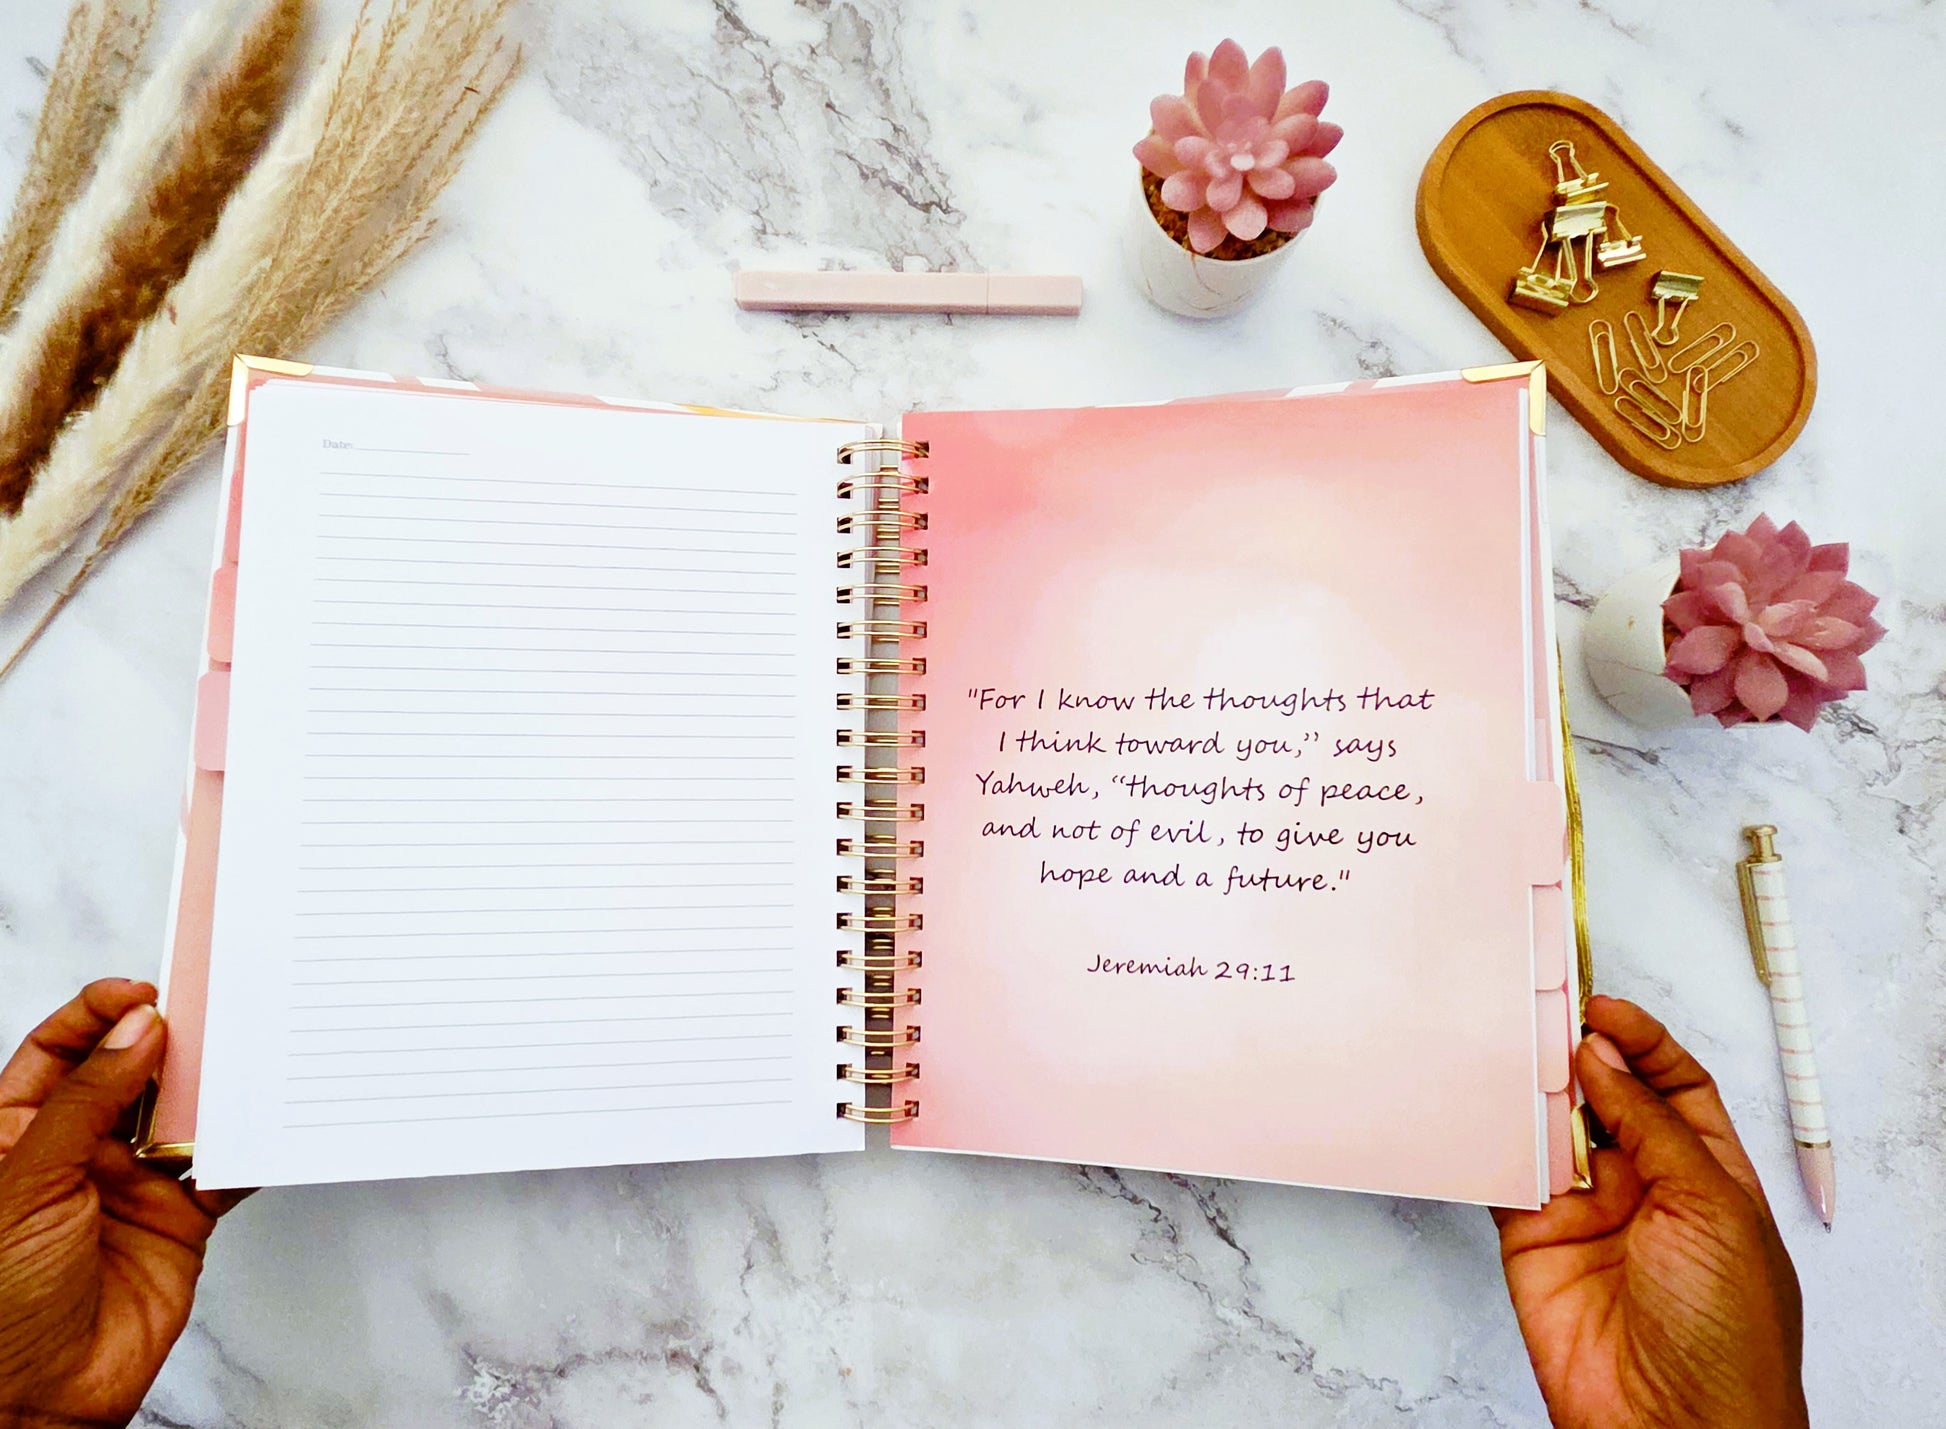 Date:
"For I know the thoughts that
I think toward you,” says
Yahweh, “thoughts of peace,
and not of evil, to give you
hope and a future."
Jeremiah 29:11